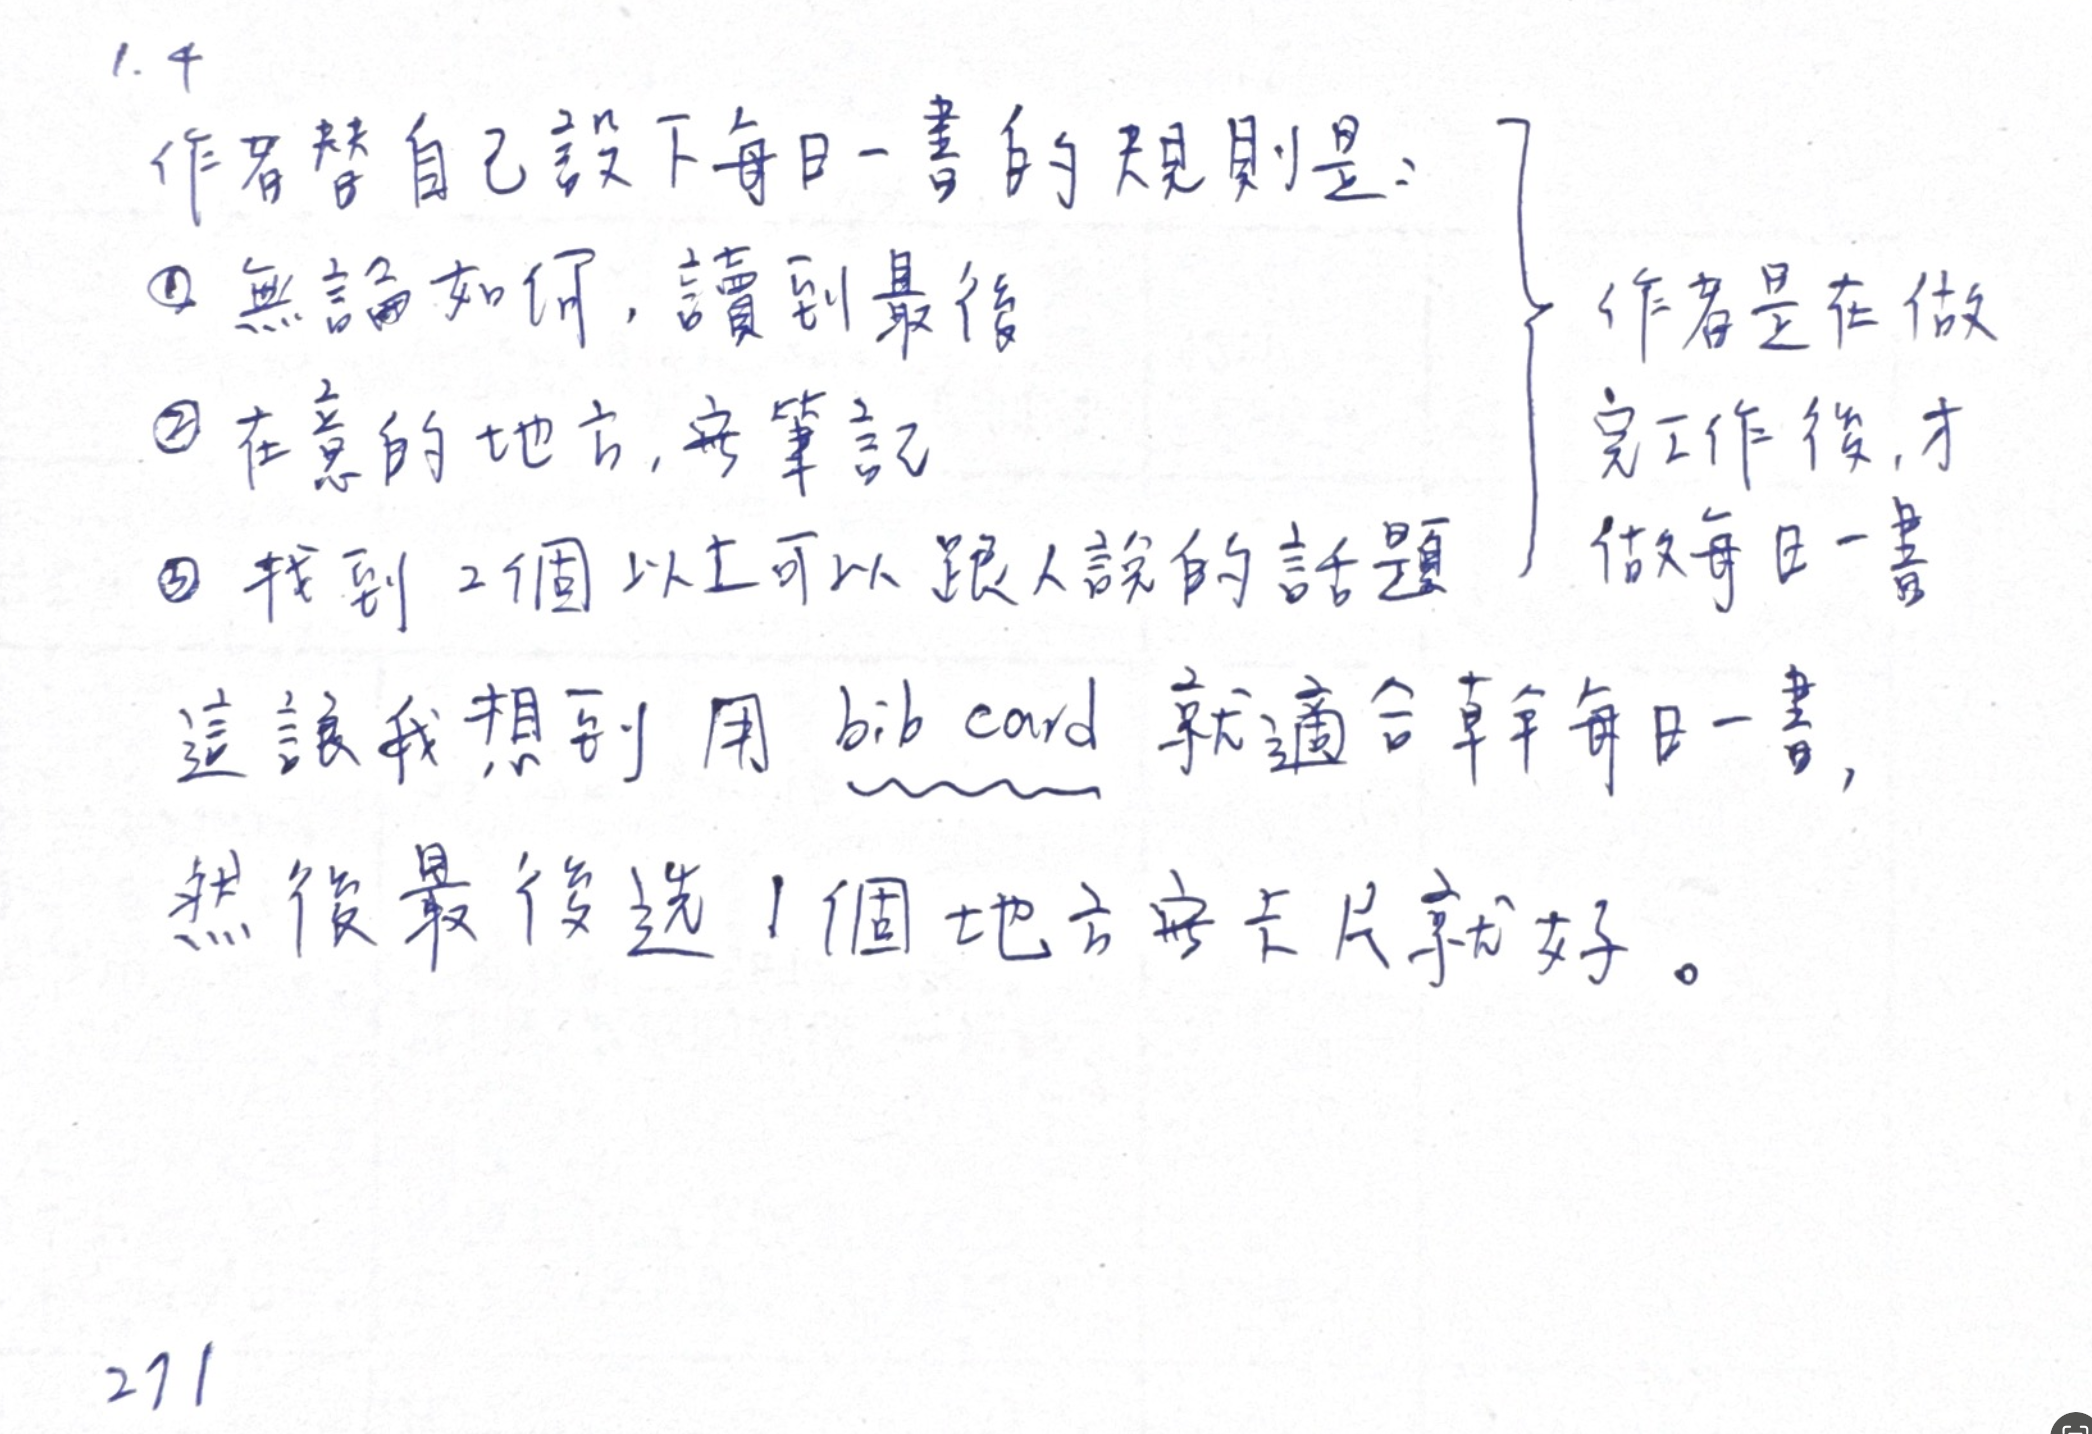 1.4
作者替自己設下每日一書的規則是：
① 無論如何，讀到最後
② 在意的地方，寫筆記
③ 找到 2個以上可以跟人說的話題
作者是在做
完工作後，才
做每日一書
這讓我想到用 bib card 就適合幹每日一書，
然後最後选1個地方寫卡片就好。
271